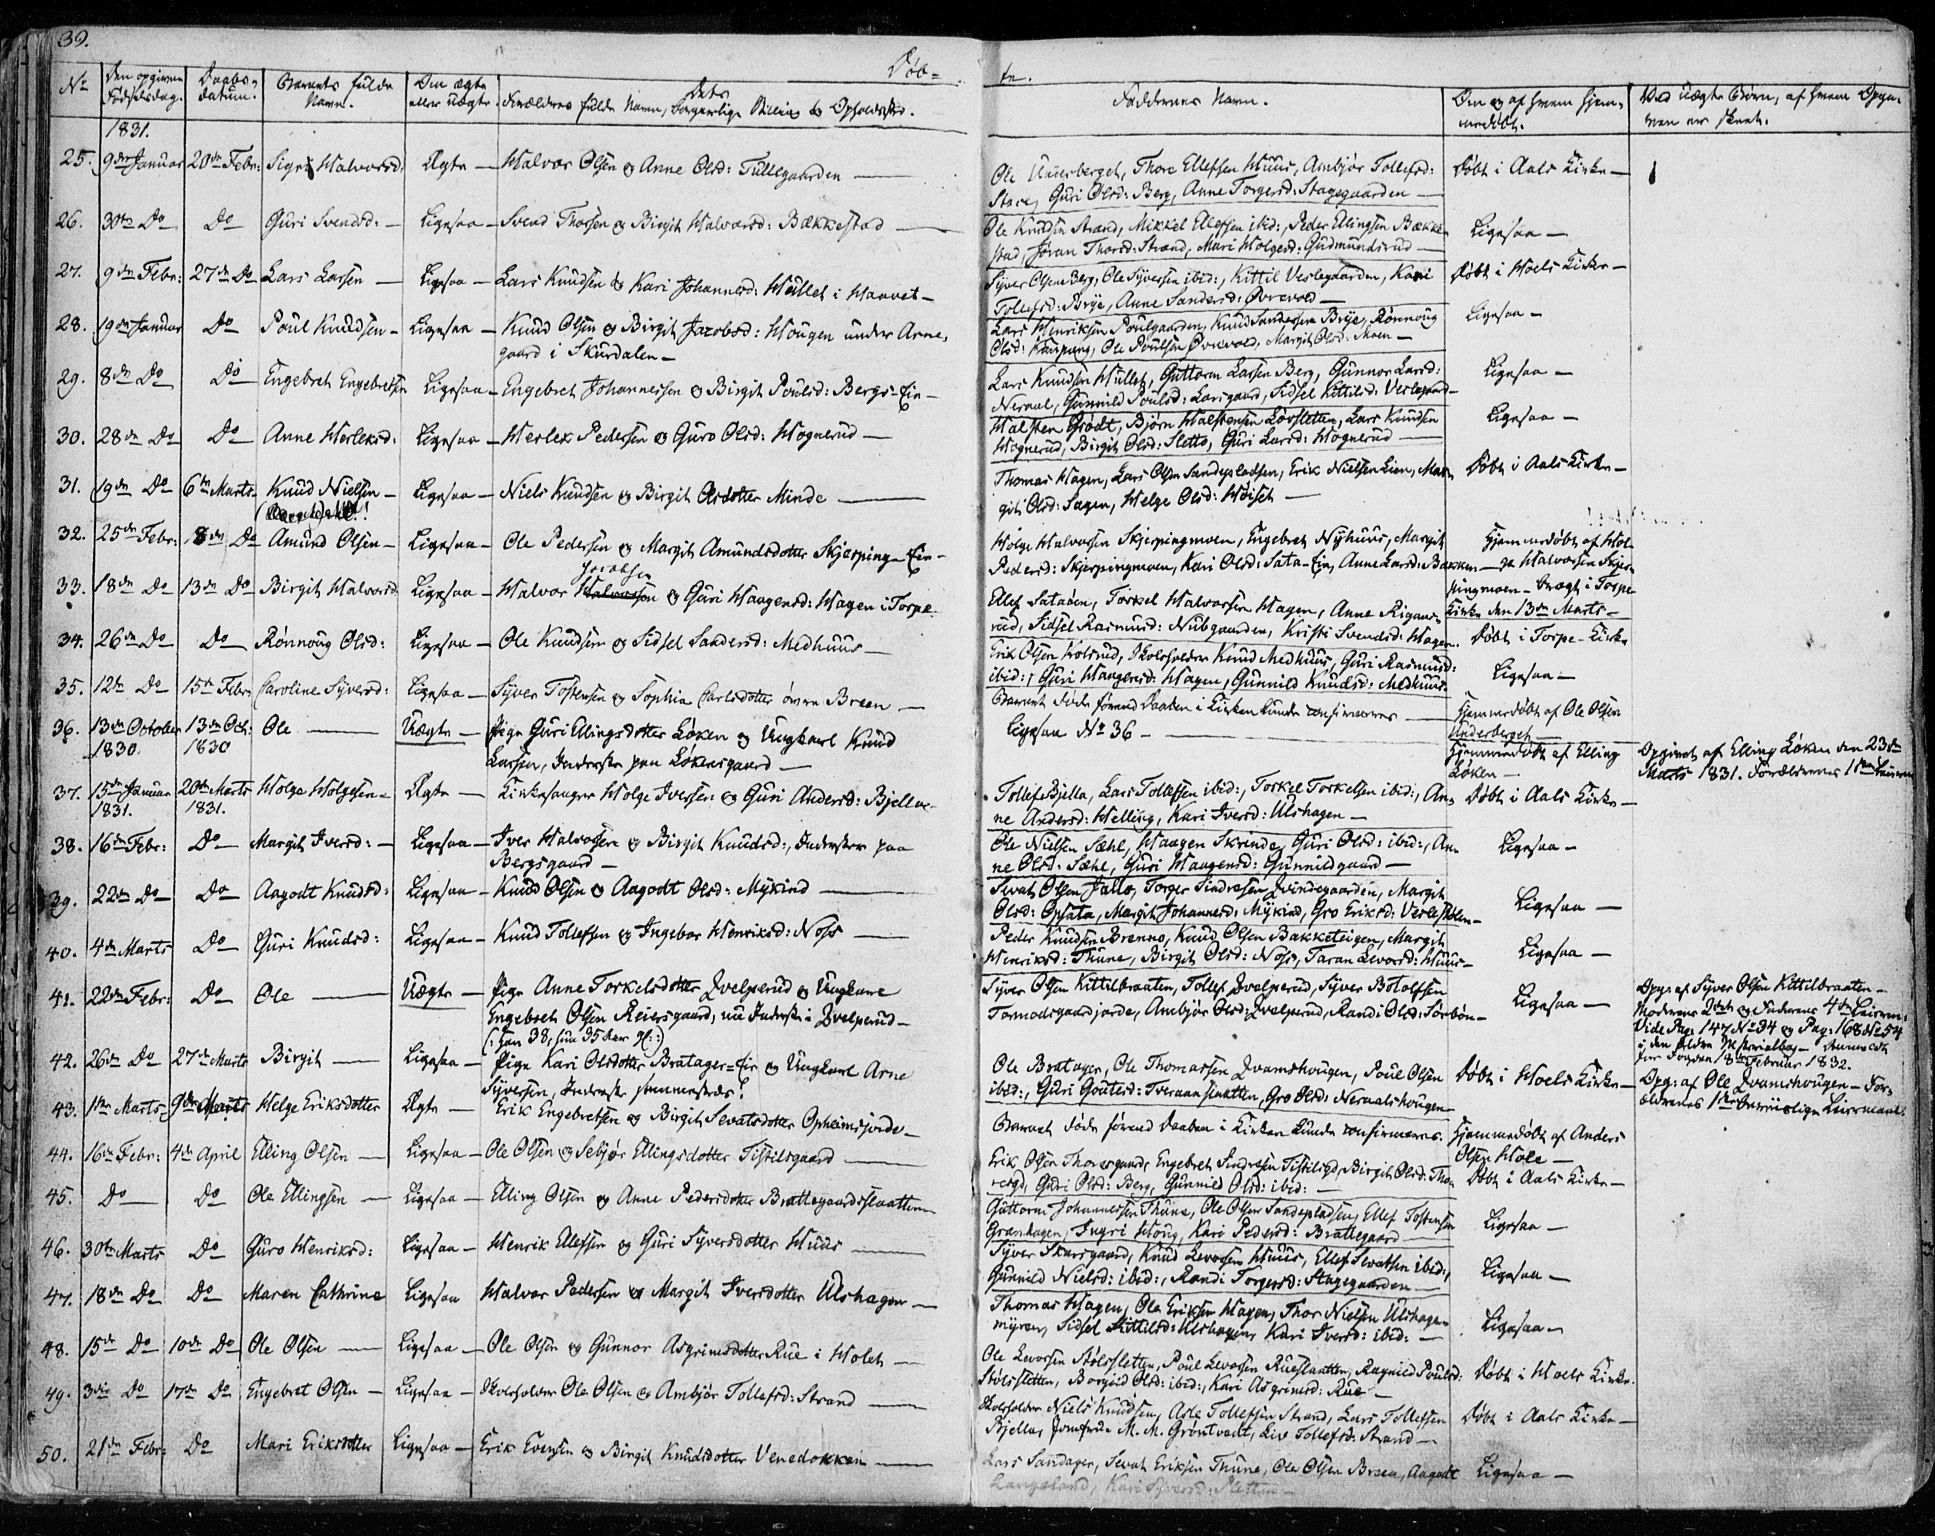 39.
Døb-
te.
No
Den opgivne Fødselsdag.
Daabs-datum.
Barnets fulde Navn.
Om ægte eller uægte.
Forældrenes fulde Navn, dets borgerlige Stilling og Opholdssted.
Faddernes Navn.
Om og af hvem hjem-medøbt.
Ved uægte Børn, af hvem Opgi-
ven er skeet.
1831.
25. 9de Januar 20de Febr: Sigri Halvorsd: Ægte — Halvor Olsen & Anne Olsd: Tullegaarden —
Ole Underberget, Thore Ellefsen Huus, Ambjør Tollefsd:
Strand, Guri Olsd: Berg, Anne Torgersd: Stagegaarden —
Døbt i Aals Kirke —
26. 30te Do Do Guri Svendsd: — Ligesaa — Svend Thorsen & Birgit Halvorsd: Bækkestad —
Ole Knudsen Strand, Mikkel Ellefsen ibid:, Peder Ellingsen Bække-
stad, Jøran Thorsd: Strand, Mari Holgersd: Gudmundsrud —
Ligesaa —
27. 9de Febr: 27de Do Lars Larsen — Ligesaa — Lars Knudsen & Kari Johannesd: Hullet i Haavet —
Syver Olsen Berg, Ole Syversen ibid:, Kittil Veslegaarden, Kari
Tollefsd: Brye, Anne Sandersd: Øvrevold —
Døbt i Hoels Kirke —
28. 19de Januar Do Poul Knudsen — Ligesaa — Knud Olsen & Birgit Jacobsd: Hougen under Arne-
gaard i Skurdalen —
Lars Henriksen Poulgaarden, Knud Sandersen Brye, Rønnoug
Olsd: Kaupang, Ole Poulsen Øvrevold, Margit Olsd: Moen —
Ligesaa —
29. 8de Do Do Engebret Engebretsen Ligesaa — Engebret Johannessen & Birgit Poulsd: Bergs-Eie —
Lars Knudsen Hullet, Guttorm Larsen Berg, Gunnor Larsd:
Neraal, Gunnild Poulsd: Larsgaard, Sidsel Kittilsd: Veslegaard —
Ligesaa —
30. 28de Do Do Anne Herleksd: Ligesaa — Herlek Pedersen & Guro Olsd: Hognerud —
Halsten Grødt, Bjørn Halstensen Lovsletten, Lars Knudsen
Hognerud, Birgit Olsd: Sletto, Guri Larsd: Hognerud —
Ligesaa —
31. 19de Do 6te Marts Knud Nielsen — Ligesaa — Niels Knudsen & Birgit Olsdotter Minde —
Thomas Hagen, Lars Olsen Sandepladsen, Erik Nielsen Lien, Mar-
git Olsd: Sagen, Helge Olsd: Høiset —
Døbt i Aals Kirke —
32. 25de Febr: 8de Do Amund Olsen — Ligesaa — Ole Pedersen & Margit Amundsdotter Skjerping-Eie —
Holge Halvorsen Skjerpingmoen, Engebret Nyhuus, Margit
Pedersd: Skjerpingmoen, Kari Olsd: Sata-Eie, Anne Larsd: Bakken —
Hjemmedøbt af Hol-
ge Halvorsen Skjer-
pingmoen — bragt i Torpe
Kirke den 13de Marts —
33. 18de Do 13de Do Birgit Halvorsd: Ligesaa — Halvor Jacobsen & Guri Haagensd: Hagen i Torpe.
Ellef Sataøen, Torkel Halvorsen Hagen, Anne Rigaas-
rud, Sidsel Rasmusd: Nubgaarden, Kristi Svendsd: Hagen.
Døbt i Torpe-Kirke
34. 26de Do Do Rønnoug Olsd: Ligesaa — Ole Knudsen & Sidsel Sandersd: Medhuus —
Erik Olsen Holsrud, Skoleholder Knud Medhuus, Guri Rasmusd:
ibid:, Guri Haagensd: Hagen, Gunnild Knudsd: Medhuus.
Ligesaa —
35. 12te Do 15de Febr: Caroline Syversd: Ligesaa — Syver Tostensen & Sophia Carlsdotter øvre Breen —
Barnet døde førend Daaben i Kirken kunde confirmeres —
Hjemmedøbt af Ole Olsen
Underberget —
36. 13de October 1830. 13de Oct: 1830 Ole — Uægte — Pige Guri Ellingsdotter Løken & Ungkarl Knud
Larsen, Inderste paa Løkensgaard —
Ligesaa No 36 —
Hjemmedøbt af Elling
Løken —
Opgivet af Elling Løken den 23de
Marts 1831. Forældrenes 1ste Leierm:
37. 15de Januar 1831. 20de Marts 1831. Holge Holgesen — Ægte — Kirkesanger Holge Iversen & Guri Andersd: Bjella —
Tollef Bjella, Lars Tollefsen ibid:, Torkel Torkelsen ibid:, An-
ne Andersd: Helling, Kari Iversd: Ulshagen —
Døbt i Aals Kirke —
38. 16de Febr: Do Margit Iversd: — Ligesaa — Iver Halvorsen & Birgit Knudsd:, Inderster paa
Bergsgaard —
Ole Nielsen Sæhl, Haagen Skrinde, Guri Olsd: ibid:, An-
ne Olsd: Sæhl, Guri Haagensd: Gunnildgaard —
Ligesaa —
39. 22de Do Do Aagodt Knudsd: Ligesaa — Knud Olsen & Aagodt Olsd: Mykind —
Sevat Olsen Jallo, Torger Sindresen Qvindegaarden, Margit
Olsd: Opsata, Margit Johannesd: Mykind, Gro Eriksd: Vesleholm —
Ligesaa —
40. 4de Marts Do Guri Knudsd: Ligesaa — Knud Tollefsen & Ingebor Henriksd: Noss —
Peder Knudsen Brenno, Knud Olsen Bakketeigen, Margit
Henriksd: Thune, Birgit Olsd: Noss, Taran Levorsd: Huus —
Ligesaa —
41. 22de Febr: Do Ole — Uægte — Pige Anne Torkelsdotter Qvelprud & Ungkarl
Engebret Olsen Reiersgaard, nu Inderste i Qvelprud —
(: han 38, hun 35 Aar gl: :)
Syver Olsen Kittilbraaten, Tollef Qvelprud, Syver Botolfsen
Tormodsgaardjorde, Ambjør Olsd: Qvelprud, Randi Olsd: Sørbøn —
Ligesaa —
Opg: af Syver Olsen Kittilbraaten —
Moderens 2det og Faderens 4de Leierm:
Vide Pag: 147 No 34 og Pag: 168 No 54
i den ældre Ministerialbog —
for Fogden 18de Februar 1832.
42. 26de Do 27de Marts Birgit — Ligesaa — Pige Kari Olsdotter Bratager-Eie & Ungkarl Arne
Syversen, Inderste sammesteds!
Ole Bratager, Ole Thomassen Qvamshougen, Poul Olsen
ibid:, Guri Goutesd: Torvensletten, Gro Olsd: Neraalshougen
Døbt i Hoels Kirke —
Opg: af Ole Qvamshougen — For-
ældrenes 1ste Leiermaal.
43. 1ste Marts 9de Marts Helge Eriksdotter Ægte — Erik Engebretsen & Birgit Sevatsdotter Opheimsjorde —
Barnet døde førend Daaben i Kirken kunde confirmeres.
Hjemmedøbt af Anders
Olsen Hole —
44. 16de Febr: 4de April Elling Olsen — Ligesaa — Ole Olsen & Sebjør Ellingsdotter Tistilsgaard —
Erik Olsen Thoresgaard, Engebret Sindresen Tistilsgd, Birgit Olsd: Tho-
resgd, Guri Olsd: Berg, Gunnild Olsd: ibid: —
Døbt i Aals Kirke —
45. Do Do Ole Ellingsen — Ligesaa — Elling Olsen & Anne Pedersdotter Brattegaardsslaatten
Guttorm Johannessen Thune, Ole Olsen Sandepladsen, Ellef Tostensen
Granhagen, Ingri Houg, Kari Pedersd: Brattegaard —
Ligesaa —
46. 30te Marts Do Guro Henriksd: Ligesaa — Henrik Ellefsen & Guri Syversdotter Huus —
Syver Skarsgaard, Knud Levorsen Huus, Ellef Sevatsen ibid:,
Gunnild Nielsd: ibid:, Randi Torgersd: Stagegaarden —
Ligesaa —
47. 18de Do Do Maren Cathrine Ligesaa Halvor Pedersen & Margit Iversdotter Ulshagen —
Thomas Hagen, Ole Eriksen Hagen, Thor Nielsen Ulshagen-
myren, Sidsel Kittilsd: Ulshagen, Kari Iversd: ibid: —
Ligesaa —
48. 15de Do 10de Do Ole Olsen — Ligesaa — Ole Olsen & Gunnor Asgrimsdotter Rue i Holet —
Ole Levorsen Stølssletten, Poul Levorsen Rueslaatten, Ragnild Poulsd:
Stølssletten, Borgild Olsd: ibid:, Kari Asgrimsd: Rue —
Døbt i Hoels Kirke.
49. 3die Do 17de Do Engebret Olsen — Ligesaa — Skoleholder Ole Olsen & Ambjør Tollefsd: Strand —
Skoleholder Niels Knudsen, Asle Tollefsen Strand, Lars Tollefsen
Bjella, Jomfrue M. M. Grøntvedt, Liv Tollefsd: Strand —
Døbt i Aals Kirke —
50. 21de Febr: Do Mari Eriksdotter Ligesaa — Erik Evensen & Birgit Knudsdotter Venedokken —
Lars Sandager, Sevat Eriksen Thune, Ole Olsen Breen, Aagodt
Langeland, Kari Syversd: Sletten —
Ligesaa —